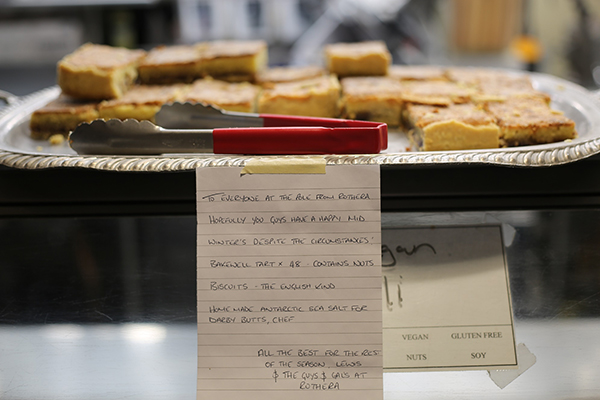 TO EVERYONE AT THE POLE FROM ROTHERA
HOPEFULLY YOU GUYS HAVE A HAPPY MID
WINTER'S DESPITE THE CIRCUMSTANCES'
BAKEWELL TART X 48 - CONTAINS NUTS
BISCUITS - THE ENGLISH KIND
HOME MADE ANTARCTIC SEA SALT FOR
DARBY BUTTS, CHEF
ALL THE BEST FOR THE RES
OF THE SEASON, LEWIS
& THE GUYS & GALS AT
ROTHERA
gan
li
VEGAN GLUTEN FREE
NUTS SOY